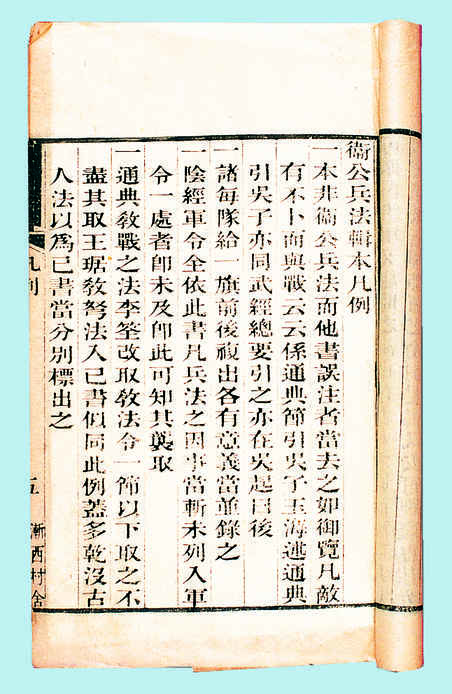 衞公兵法輯本凡例
一本非衞公兵法而他書誤注者當去之如御覽凡敵
有不卜而與戰云云係通典節引吳子玉海述通典
引吳子亦同武經總要引之亦在吳起曰後
一諸每隊給一旗前後複出各有意義當並錄之
一陰經軍令全依此書凡兵法之因事當斬未列入軍
令一處者卽未及卽此可知其襲取
一通典敎戰之法李筌改取敎法令一節以下取之不
盡其取王琚敎弩法入已書似同此例蓋多乾沒古
人法以爲已書當分別標出之
凡例
五
漸西村舍